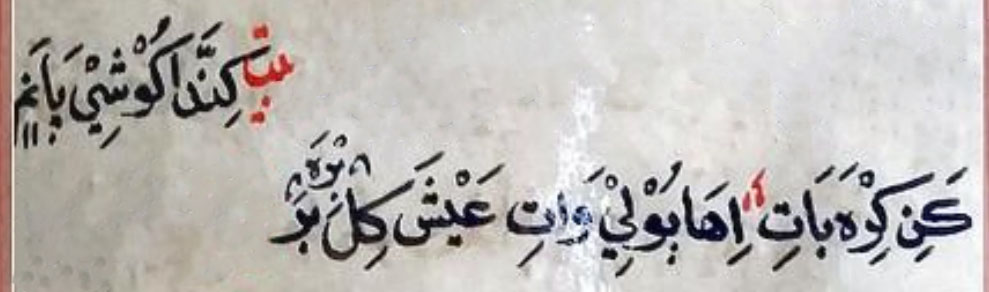 بيت كِنَّدَا كُوْشِيْ پَانِمٖ
كَنِ كِرْهَ بَاتِ " اِهَا بُوْلِيْ وَاتِ عَيْشَ كِلَ بَرَ